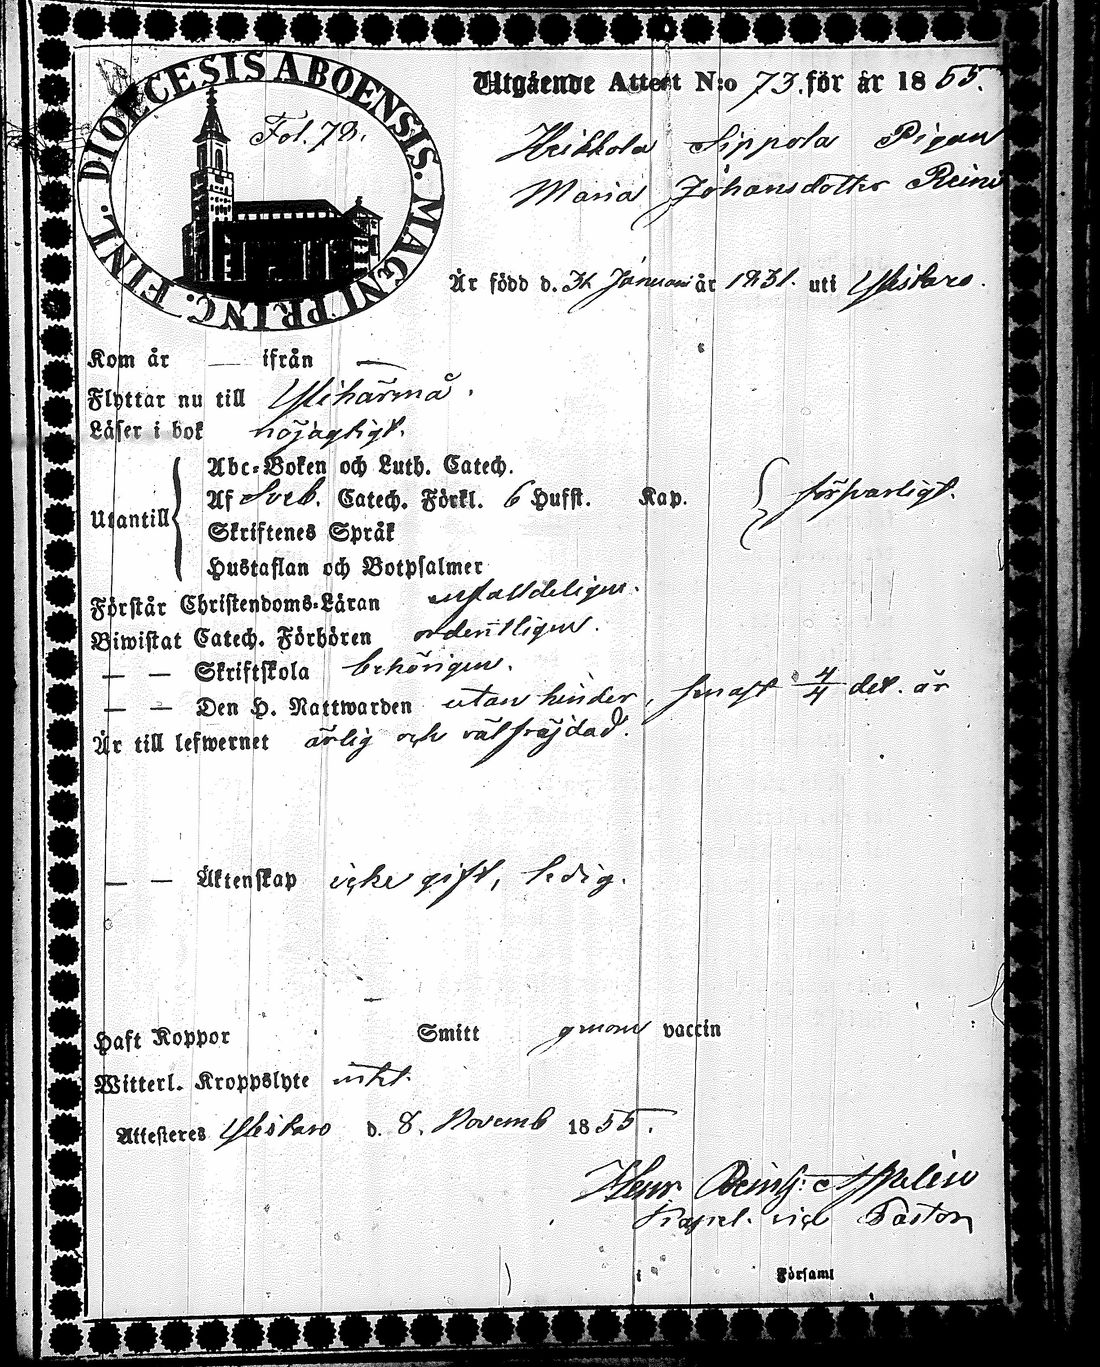 DIOECESIS ABOENSIS. MAGNI PRINC. FINL.
Fol. 78.
Utgående Attest N:o 73. för år 1855.
Heikkola Sippola Pigan
Maria Johansdotter
Är född d. Januari år 1831. uti Ylistaro.
Kom år — ifrån —
Flyttar nu till Ylihärmä.
Läser i bok nöjagtigt.
Abc-Boken och Luth. Catech.
Af Sveb. Catech. Förkl. 6 Hufst. Kap. försvarligt.
Utantill
Skriftenes Språk
Hustaflan och Botpsalmer
Förstår Christendoms-Läran enfaldeligen.
Biwistat Catech. Förhören ordentligen.
— — Skriftskola behörigen.
— — Den H. Nattwarden utan hinder, senast 4/4 det. år
Är till lefwernet ärlig och välfräjdad.
— — Äktenskap icke gift, ledig.
Haft Koppor — Smitt genom vaccin
Witterl. Kroppslyte intet.
Attesteres Ylistaro d. 8. Novemb 1855.
Henr Reinh:
Kapel. vid Pastor
i Församl